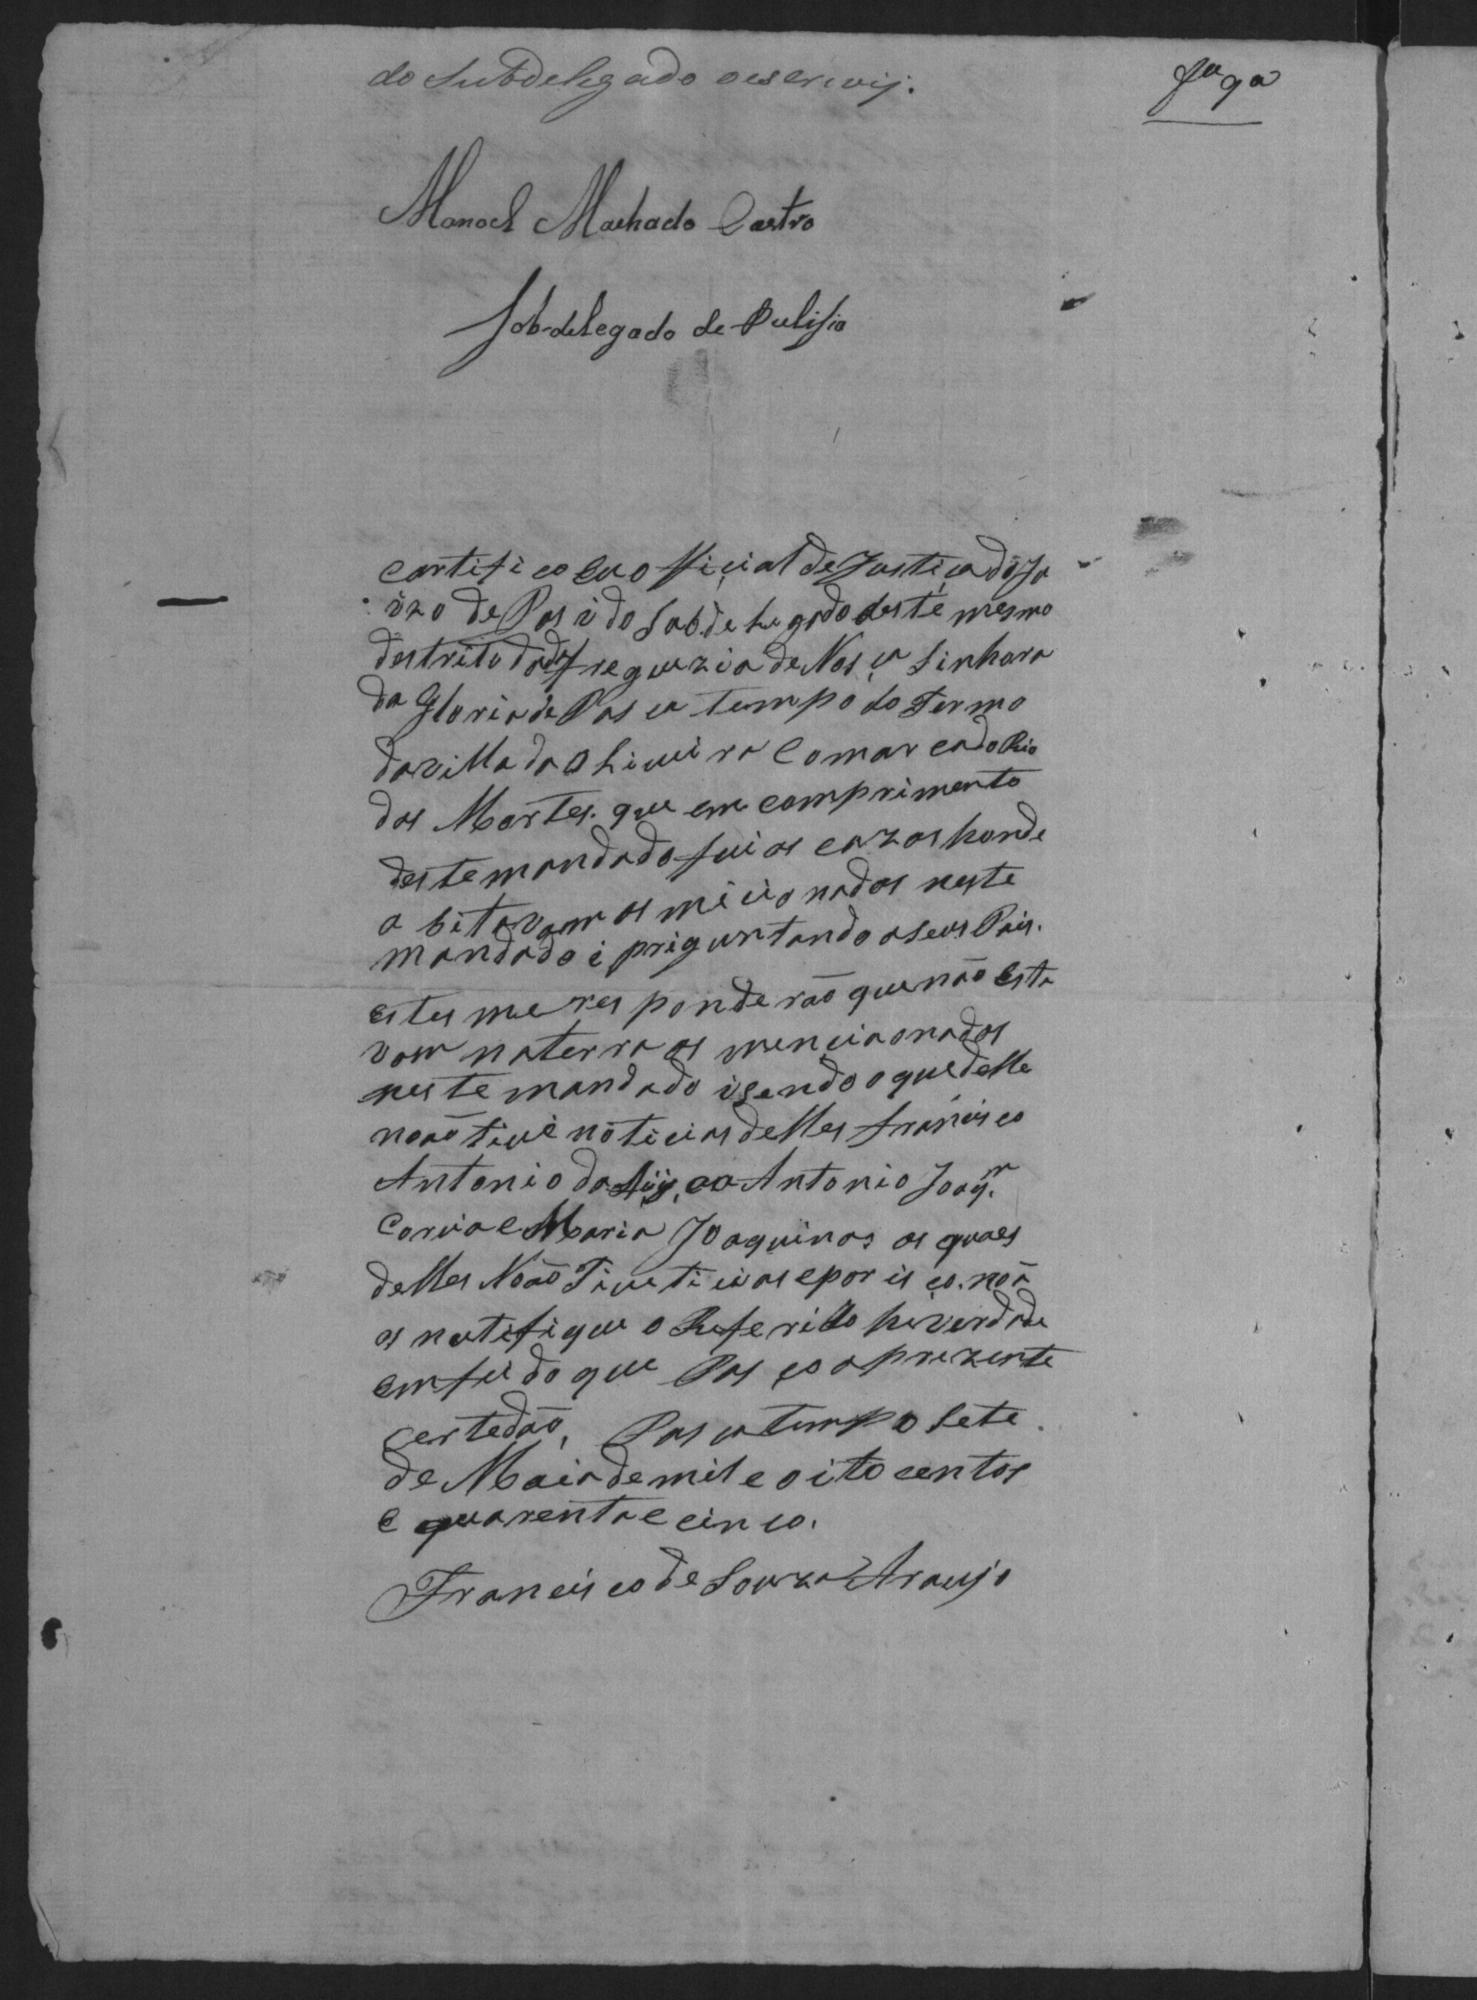 do Subdelegado oescrivij.
Manoel Machado Castro
Sob-delegado de Pulisia
Cartifico Eu official de Justica do Ju
izo de Pas i do Sabdelegado deste mesmo
destrito da freguezia de Nosça Sinhora
da Gloria de Pasça tempo do Termo
da villa da Oliveira Comarca do Rio
das Mortes. que em comprimento
deste mandado fui as cazas honde
abitavam os micionados neste
mandado i priguntando a seus Pais.
estes me responderão que não esta
vam na terra os mencionados
neste mandado isendo o que delle
não tive noticias delles Francisco
Antonio da Antonio Joaqm.
Maria Joaquinas os quaes
delles Não Tive ticias e por isço. não
os nutifique o Referido he verdade
em fé do que Pasço a prezente
certedão, Pasçatempo Sete
de Maio de mil e oito centos
e quarenta e cinco.
Francisco de Souza Araujo